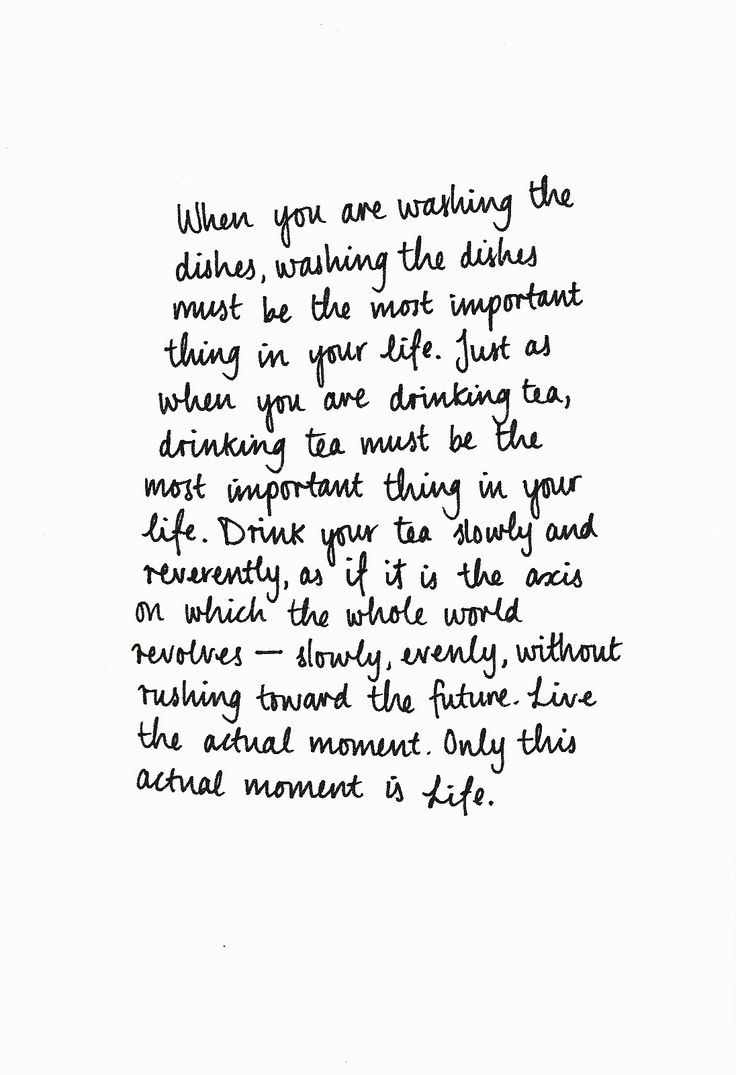 When you are washing the
dishes, washing the dishes
must be the most important
thing in your life. Just as
when you are drinking tea,
drinking tea must be the
most important thing in your
life. Drink your tea slowly and
reverently, as if it is the axis
on which the whole world
revolves — slowly, evenly, without
rushing toward the future. Live
the actual moment. Only this
actual moment is Life.